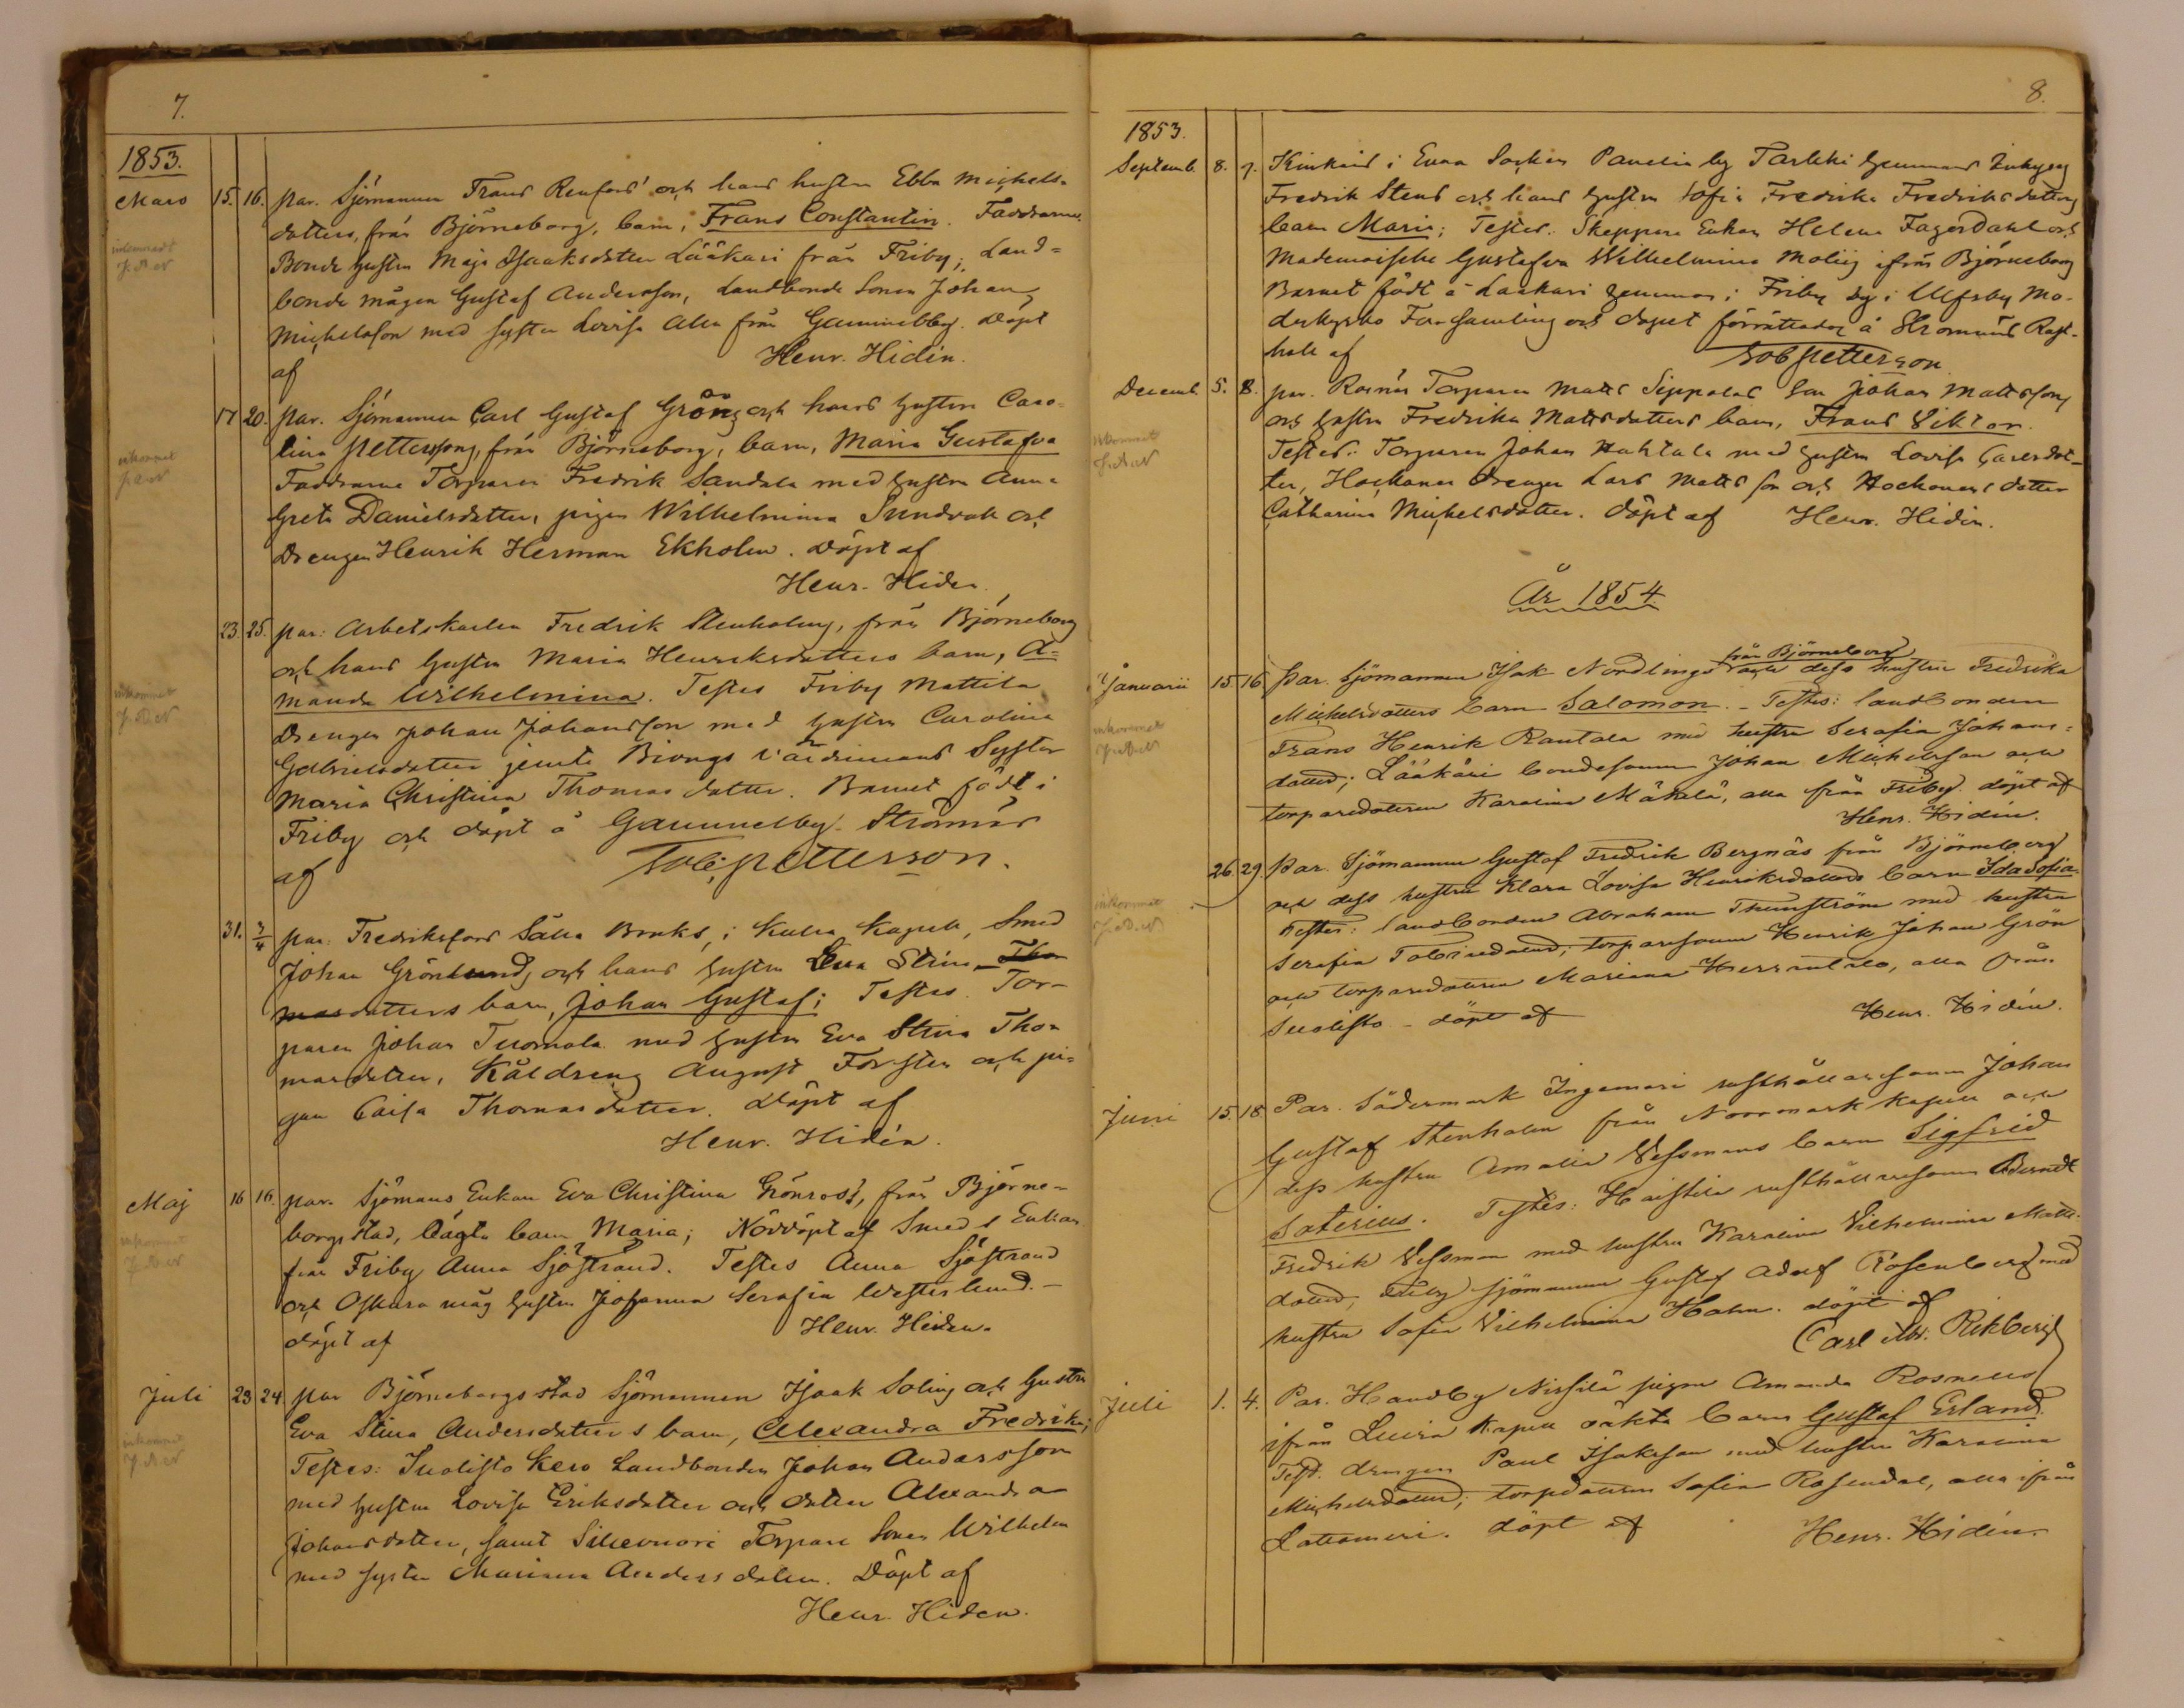 7.
1853.
Mars 15. 16. par. Sjömannen Frans Renfors' och hans hustru Ebba Michels-
dotters, från Björneborg, barn, Frans Constantin. Faddrarne
Bonde hustru Maja Isaaksdotter Lääkäri från Friby, Land-
bonde mågen Gustaf Andersson, Landbonde Sonen Johan
Michelsson med syster Lovisa alla från Gammelby. Döpt
af Henr. Hidén.
17 20. par. Sjömannen Carl Gustaf Grön och hans hustru Caro-
lina Pettersson, från Björneborg, barn, Maria Gustafva
Faddrarne Torparen Fredrik Sandala med hustru Anna
Greta Danielsdotter, pigan Wilhelmina Sundvall och
Drengen Henrik Herman Ekholm. Döpt af
Henr. Hiden
23. 25. par: Arbetskarlen Fredrik Stenholm, från Björneborg
och hans hustru Maria Henriksdotters barn, A-
manda Wilhelmina. Testes Friby Mattila
Drengen Johan Johansson med hustru Carolina
Gabrielsdotter jemte Syster
Maria Christina Thomasdotter. Barnet födt i
Friby och döpt å Gammelby Strömnäs
af Tob: Petterson.
31. 3/4 par: Fredriksfors Såg Bruks, i Kulla Kapell, Smed
Johan Grönlund, och hans hustru Eva Stina Tho
masdotters barn, Johan Gustaf; Testes. Tor-
paren Johan Tuomala med hustru Eva Stina Tho-
masdotter, Kåldreng August Forsten och pi-
gan Caisa Thomasdotter. Döpt af
Henr. Hidén.
Maj 16 16. par. Sjömans Enkan Eva Christina Grönroos, från Björne-
borgs stad, oägta barn Maria; Nöddöpt af Smeds Enkan
från Friby Anna Sjöstrand. Testes Anna Sjöstrand
och Oskara måg hustru Johanna Serafia Westerlund.-
döpt af Henr. Hiden.
Juli 23 24. par Björneborgs stad Sjömannen Isaak Soling och hustru
Eva Stina Andersdotters barn, Alexandra Fredrika;
Testes: Inolisto Kero Landbonden Johan Andersson
med hustru Lovisa Eriksdotter och dotter Alexandra
Johansdotter, samt Torpare Sonen Wilhelm
med syster Mariana Andersdotter. Döpt af
Henr. Hiden.
8.
1853.
Septemb. 8. 9. Kiukais i Eura Socken Panelia by Tarkki hemmans Inhyses
Fredrik Stens och hans hustru Sofia Fredrika Fredriksdotters
barn Maria; Testes: Skeppare Enkan Helena Fagerdahl och
Mademoiselle Gustafva Wilhelmina Moliij ifrån Björneborg
Barnet födt å Laakari hemman i Friby by i Ulfsby Mo-
derkyrko Församling och dopet förrättades å Strömnäs Rust-
håll af Tob Petterson
Decemb. 5. 8. par. Rosnäs Torparen Matts Sippolas Son Johan Mattsson
och hustru Fredrika Mattsdotters barn, Frans Viktor.
Testes: Torparen Johan Hahtala med hustru Lovisa Carlsdot-
ter, Hochanen Drengen Lars Matts son och Hochanens dotter
Catharina Michelsdotter. döpt af Henr. Hidén.
År 1854
Januarii 15 16. Par. Sjömannen Isak Nordlings från Björneborg och dess hustru Fredrika
Michelsdotters barn Salomon. - Testes: landbonden
Frans Henrik Rantala med hustru Serafia Johans-
dotter; Lääkäri bondesonen Johan Michelsson och
torparedottern Karolina Mäkelä, alla från Friby. döpt af
Henr. Hidén.
26. 29. Par. Sjömannen Gustaf Fredrik Bergnäs från Björneborg
och dess hustru Klara Lovisa Henriksdotters barn Ida Sofia.
Testes: landbonden Abraham Thunström med hustru
Serafia Tobiasdotter; torparesonen Henrik Johan Grön
och torparedottern Mariana, alla från
Suolisto - döpt af Henr. Hidén.
Juni 15. 18. Par. Södermark Ingemari rusthållaresonen Johan
Gustaf Stenholm från Norrmark kapell och
dess hustru Amalia Vessmans barn Sigfrid
Soterius. Testes: Haistila rusthållaresonen Berndt
Fredrik Vessman med hustru Karolina Vilhelmina Matts-
dotter, Friby sjömannen Gustaf Adolf Rosenberg med
hustru Sofia Vilhelmina Holm. döpt af
Carl Mr. Rikberg
Juli 1. 4. Par. Handby Nissilä pigan Amanda Rosnells
ifrån Luvia kapell oäkta barn Gustaf Erland.
Test. drengen Paul Isaksson med hustru Karolina
Michelsdotter; torpdottern Sofia Rosendal, alla ifrån
Lattomeri. döpt af Henr. Hidén.